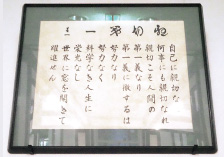 親切第一
自己に親切な
何事にも親切なれ
親切こそ人間の
第一義なり
第一義に徹するは
努力なり
努力なく
科学なき人生に
栄光なし
世界に窓を開きて
躍進せん